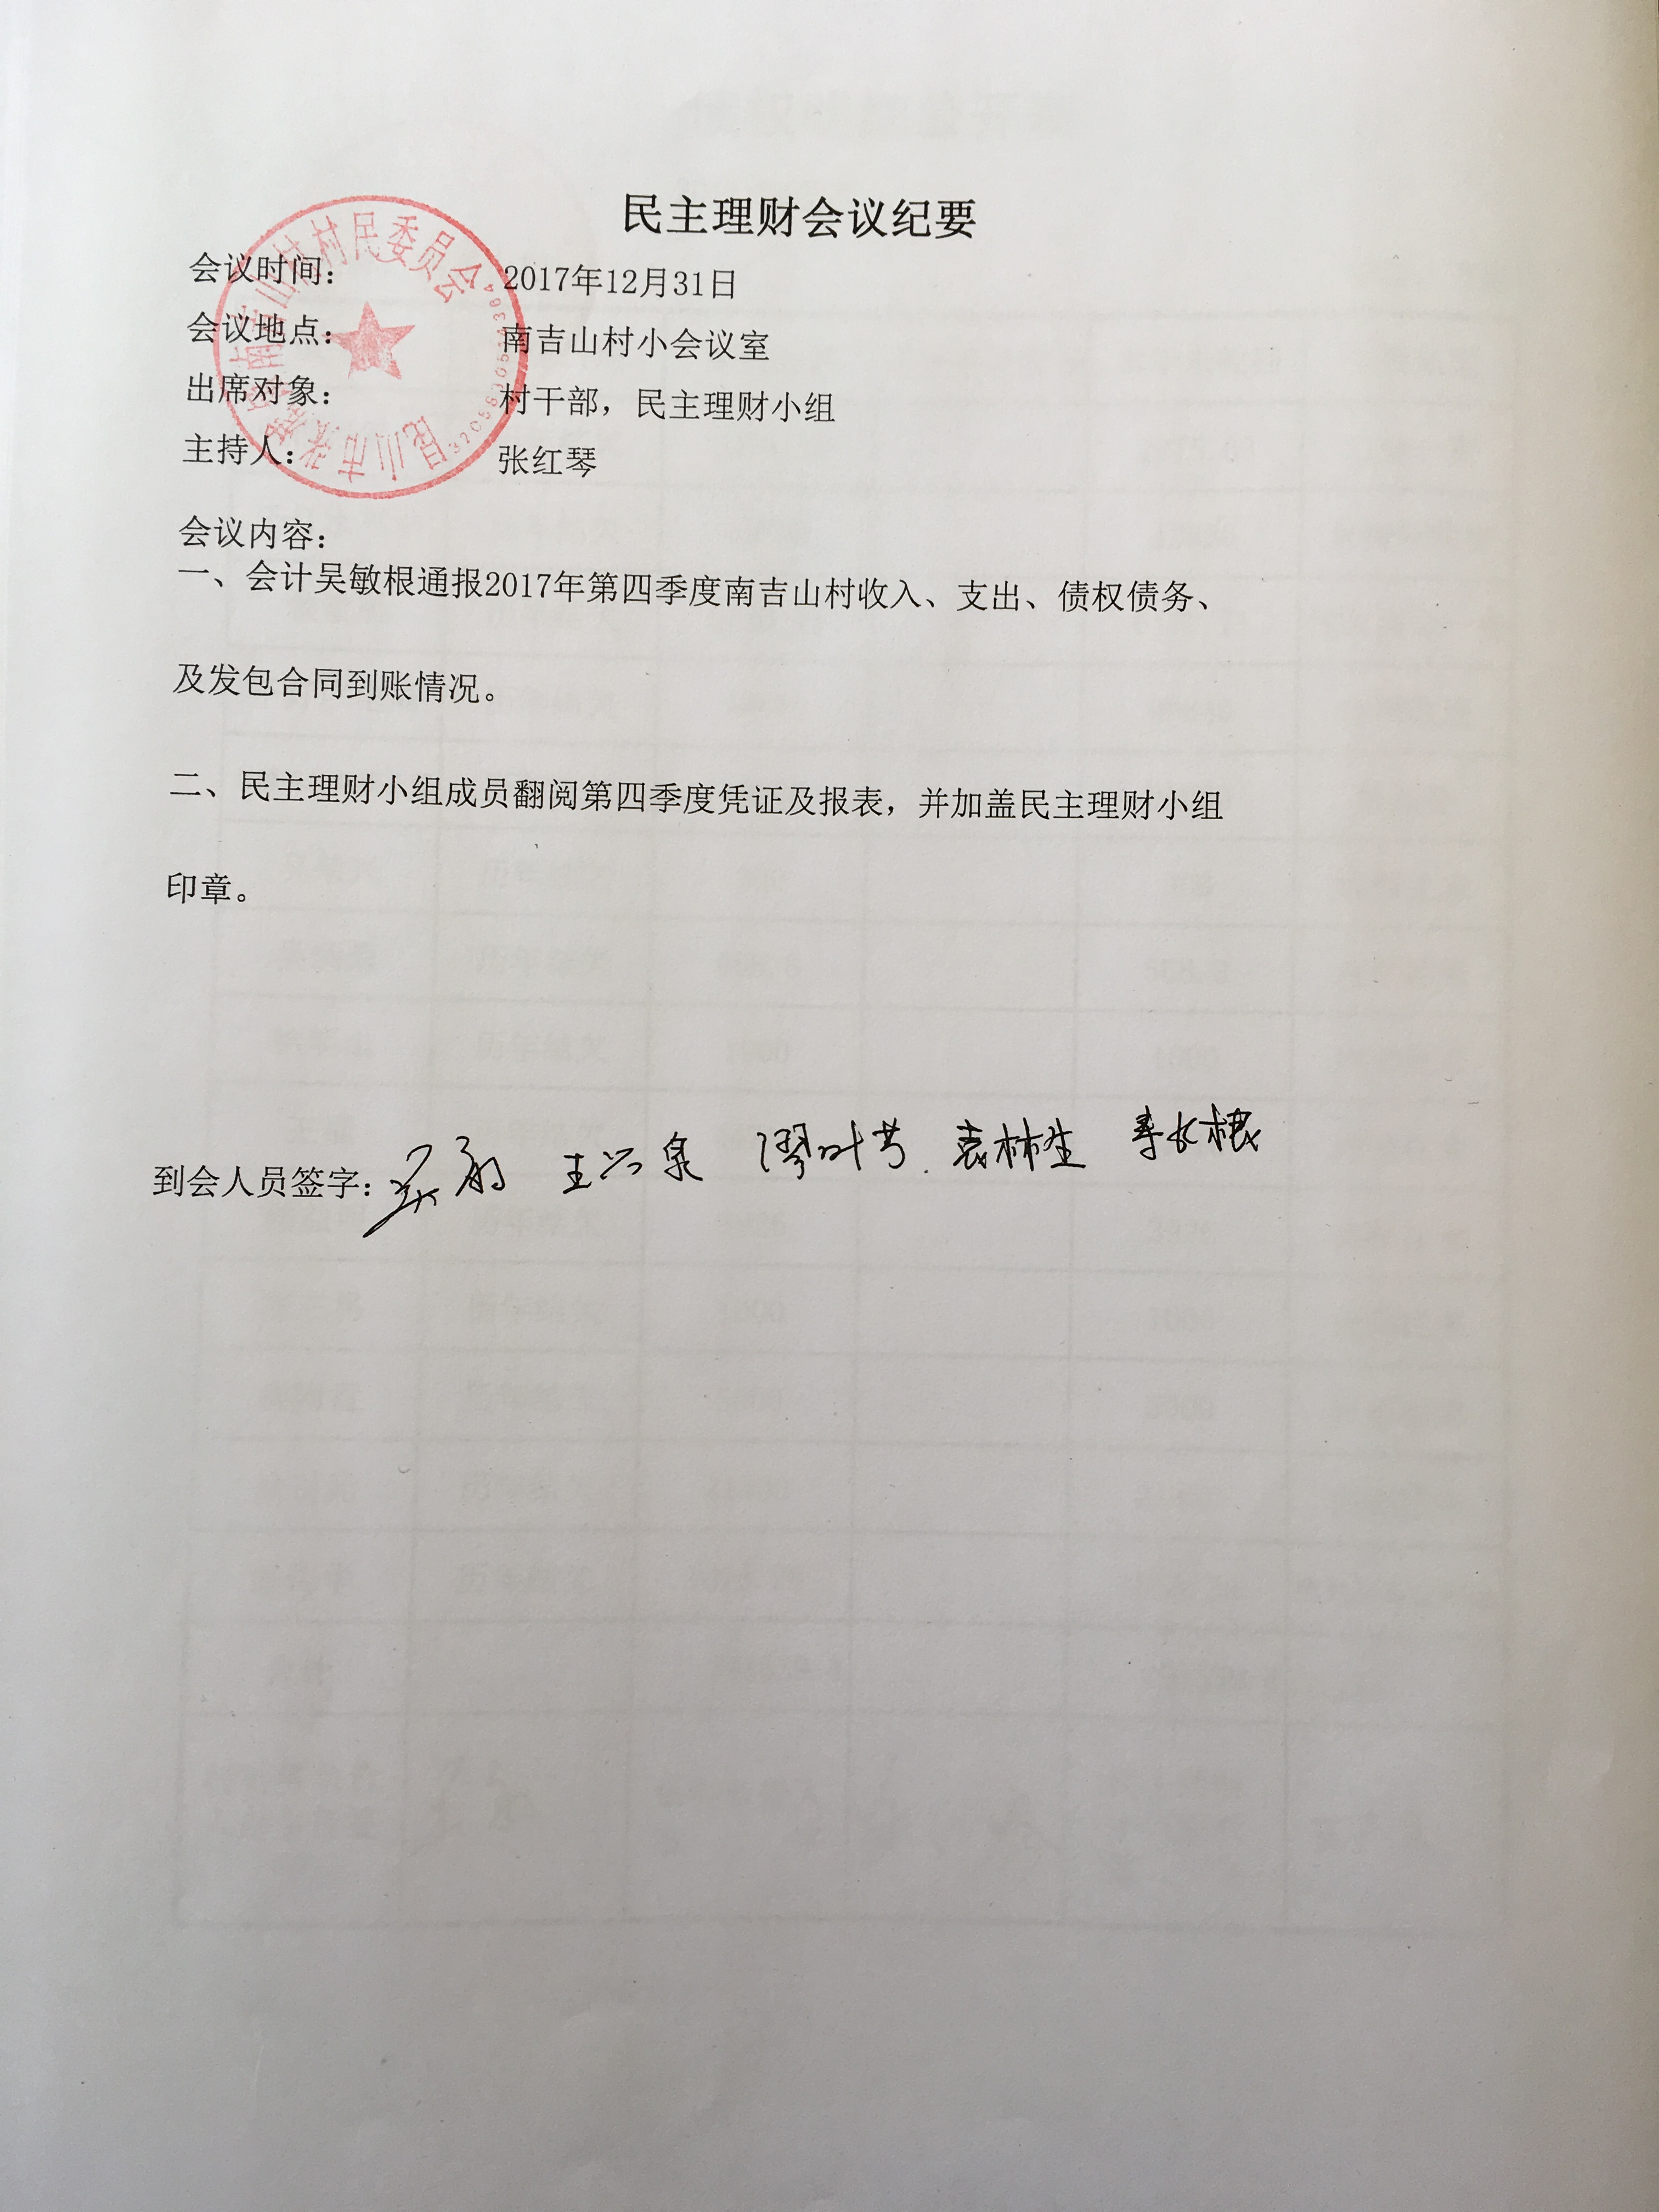 民主理财会议纪要
会议时间： 2017年12月31日
会议地点： 南吉山村小会议室
出席对象： 村干部，民主理财小组
主持人： 张红琴
昆山市张浦镇南吉山村村民委员会
会议内容：
一、会计吴敏根通报2017年第四季度南吉山村收入、支出、债权债务、
及发包合同到账情况。
二、民主理财小组成员翻阅第四季度凭证及报表，并加盖民主理财小组
印章。
到会人员签字： 王兴泉 袁林生